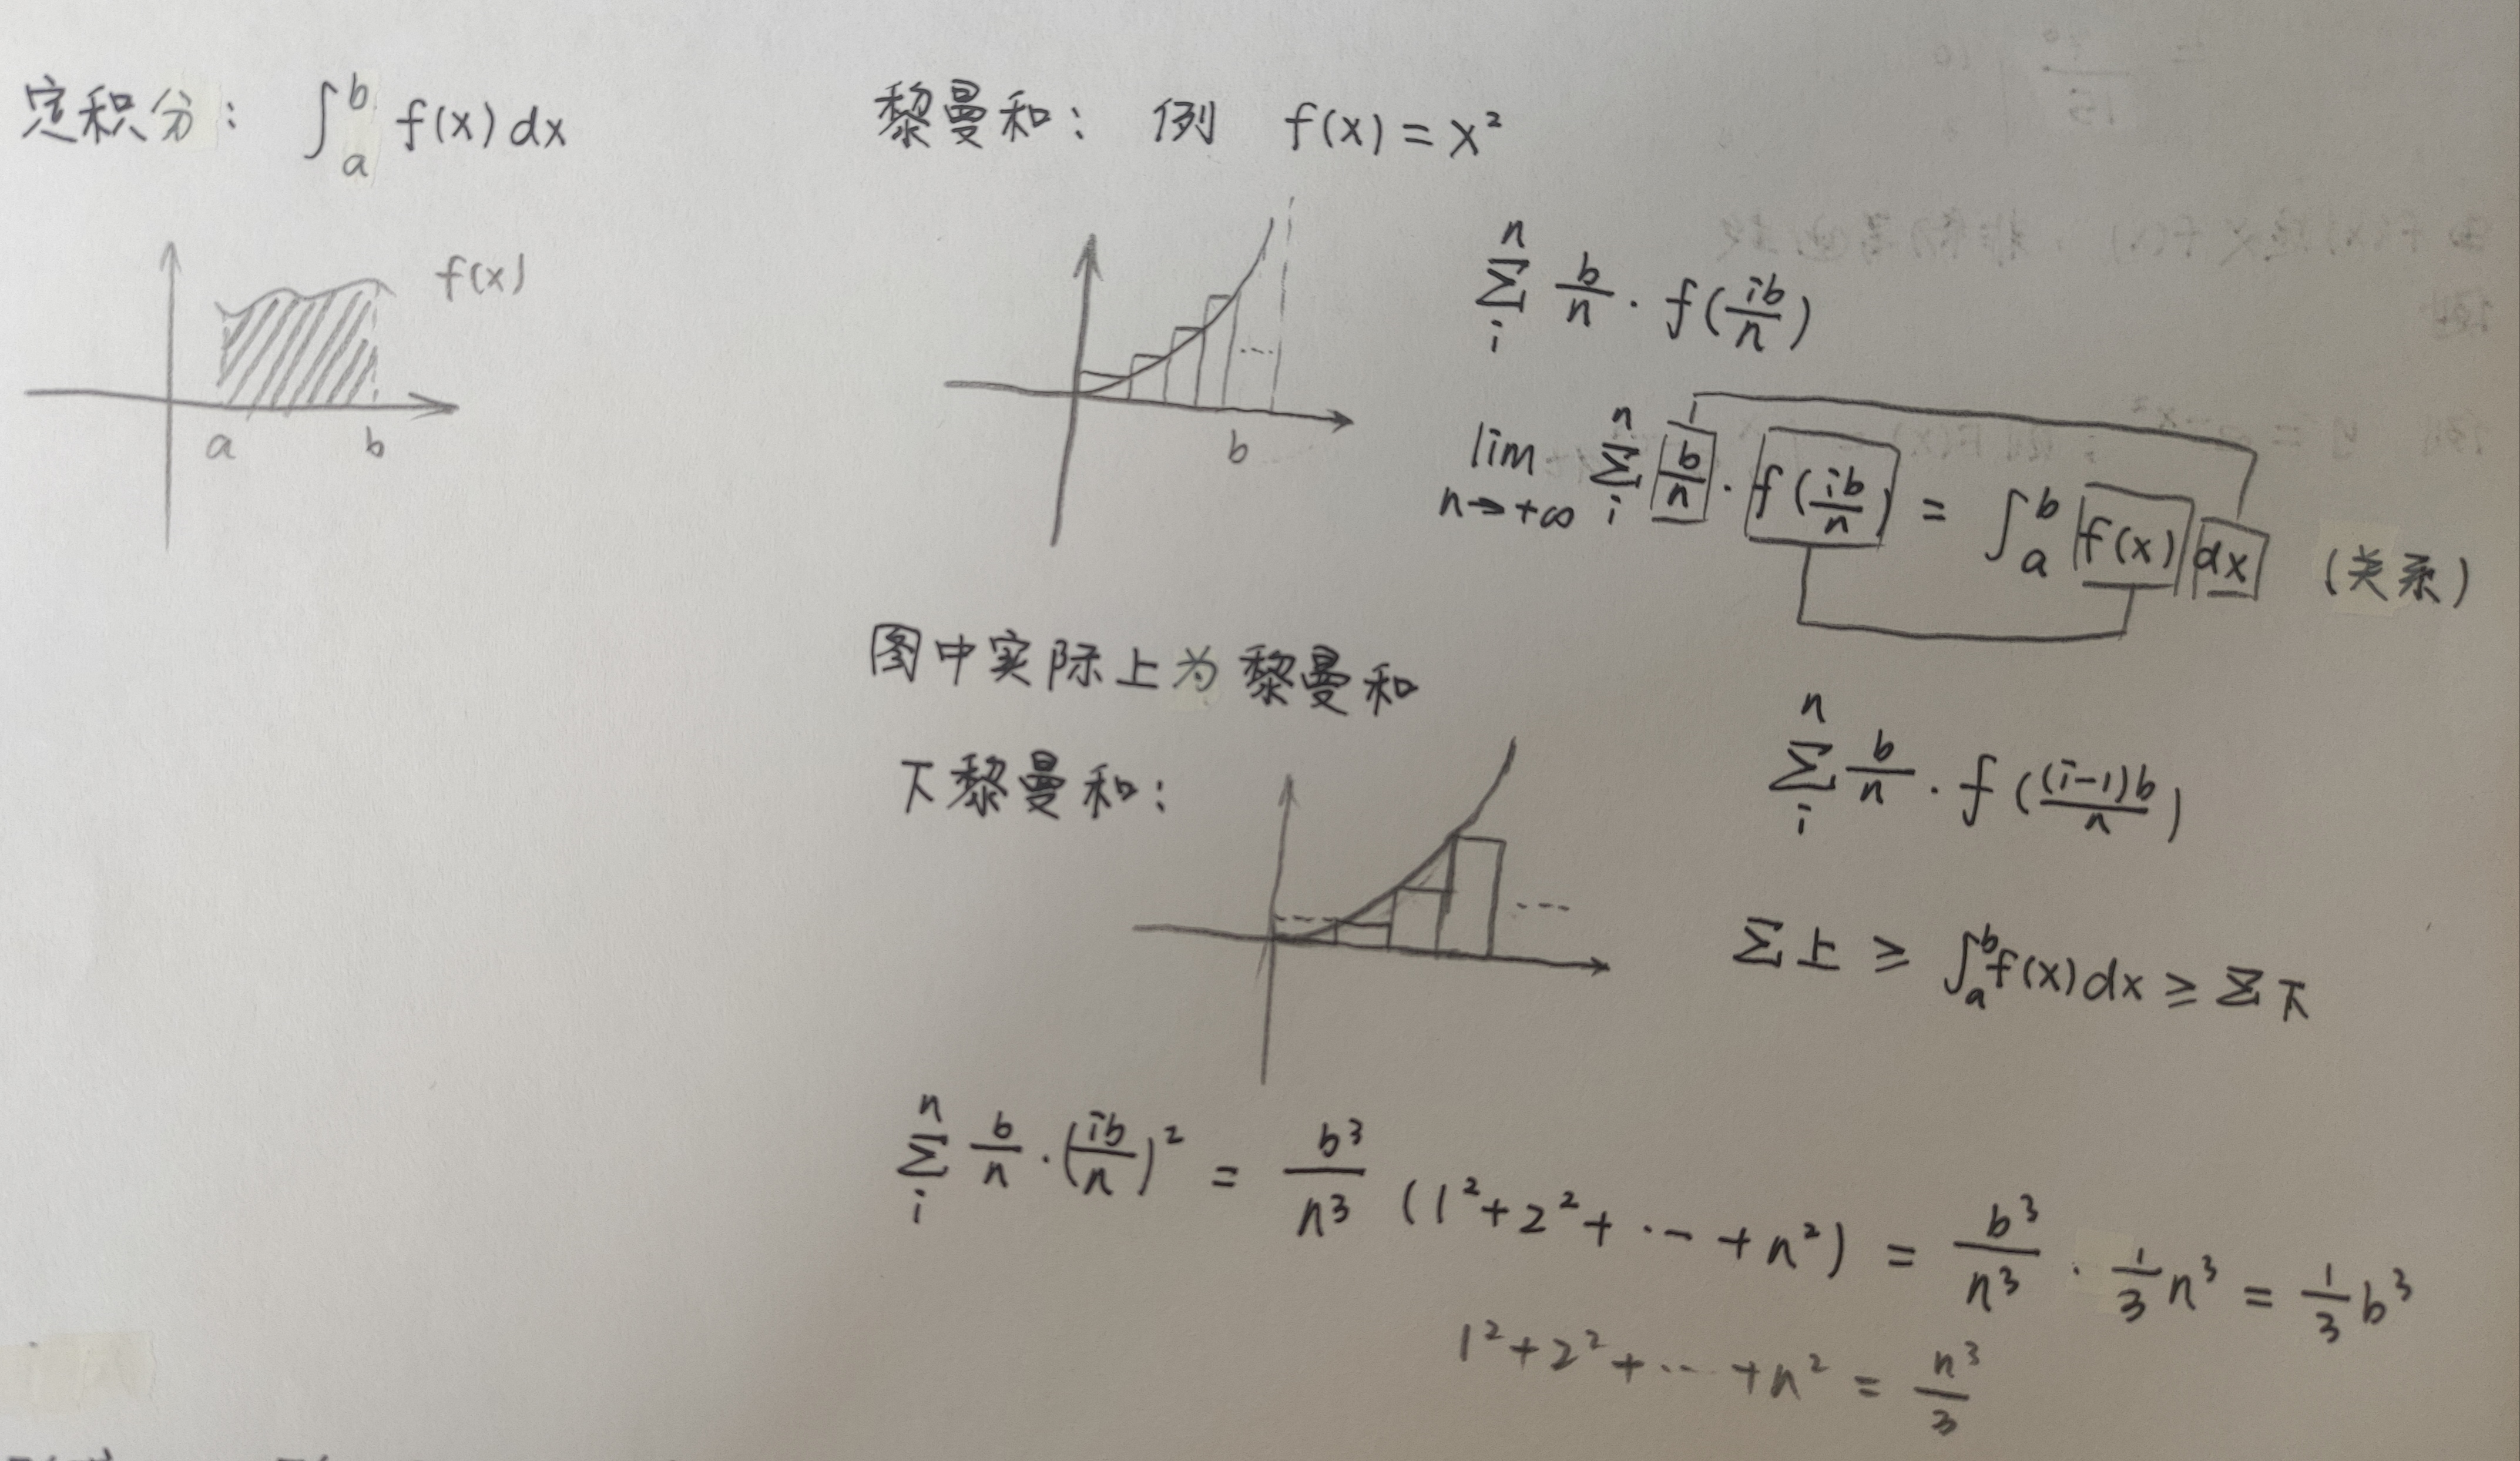 定积分: ∫_a^b f(x) dx
f(x)
a b
黎曼和: 例 f(x) = x²
b
∑_i^n b/n · f(ib/n)
lim_{n→+∞} ∑_i^n b/n · f(ib/n) = ∫_a^b f(x) dx (关系)
图中实际上为黎曼和
下黎曼和:
∑_i^n b/n · f((i-1)b/n)
∑上 ≥ ∫_a^b f(x) dx ≥ ∑下
∑_i^n b/n · (ib/n)² = b³/n³ (1² + 2² + ··· + n²) = b³/n³ · 1/3 n³ = 1/3 b³
1² + 2² + ··· + n² = n³/3